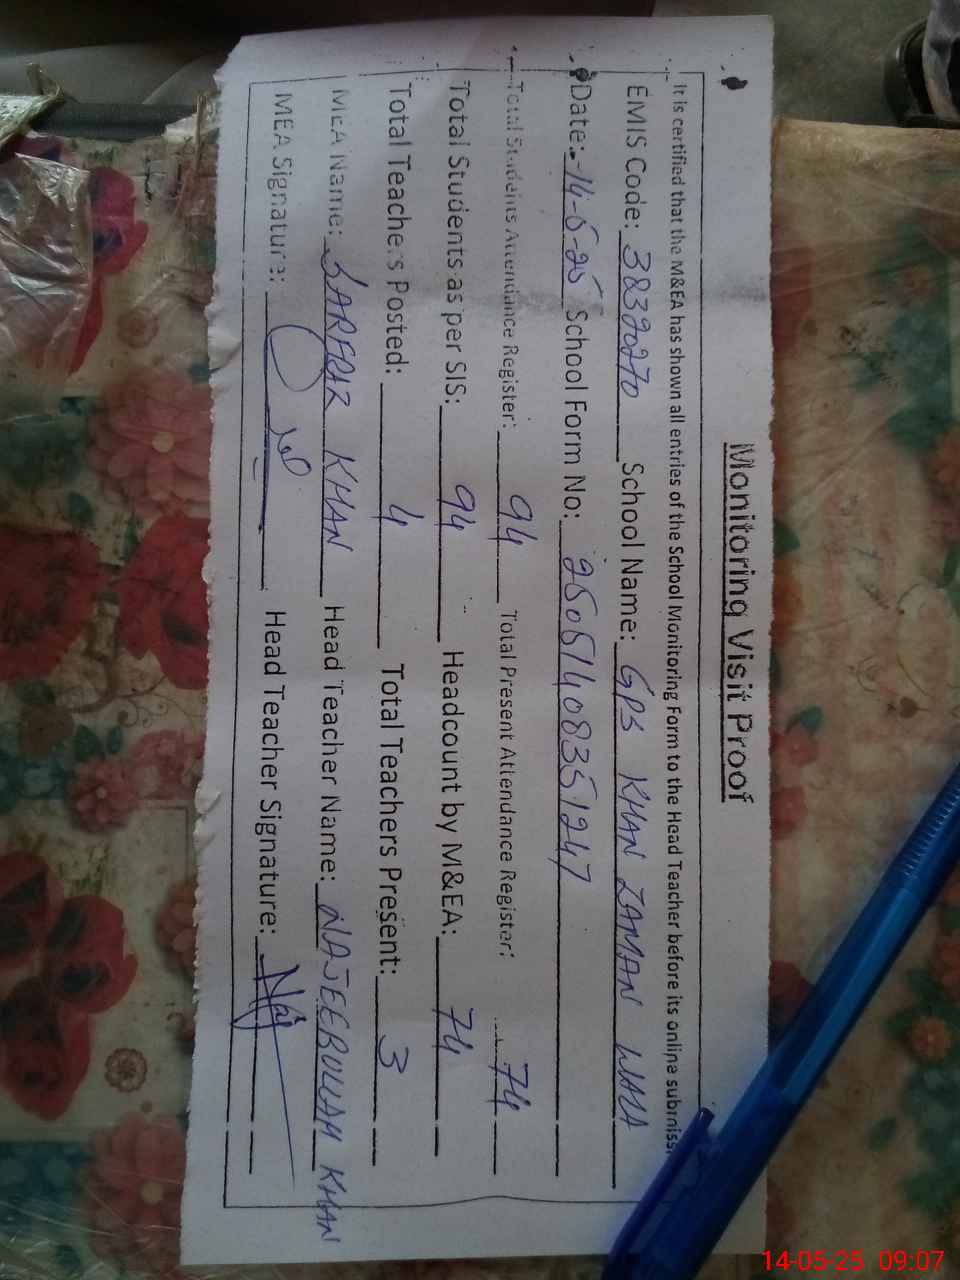 Monitoring Visit Proof
It is certified that the M&EA has shown all entries of the School Monitoring Form to the Head Teacher before its online submiss
EMIS Code: 38320270 School Name: GPS KHAN ZAMAN WALA
Date:-14-5-25 School Form No: 25051408351247
Total Students Attendance Register: 94 Total Present Attendance Register: 74
Total Students as per SIS: 94 Headcount by M&EA: 74
Total Teachers Posted: 4 Total Teachers Present: 3
MEA Name: SARFRAZ KHAN Head Teacher Name: NAJEEBULLAH KHAN
MEA Signature: Head Teacher Signature: Naj
14-05-25 09:07